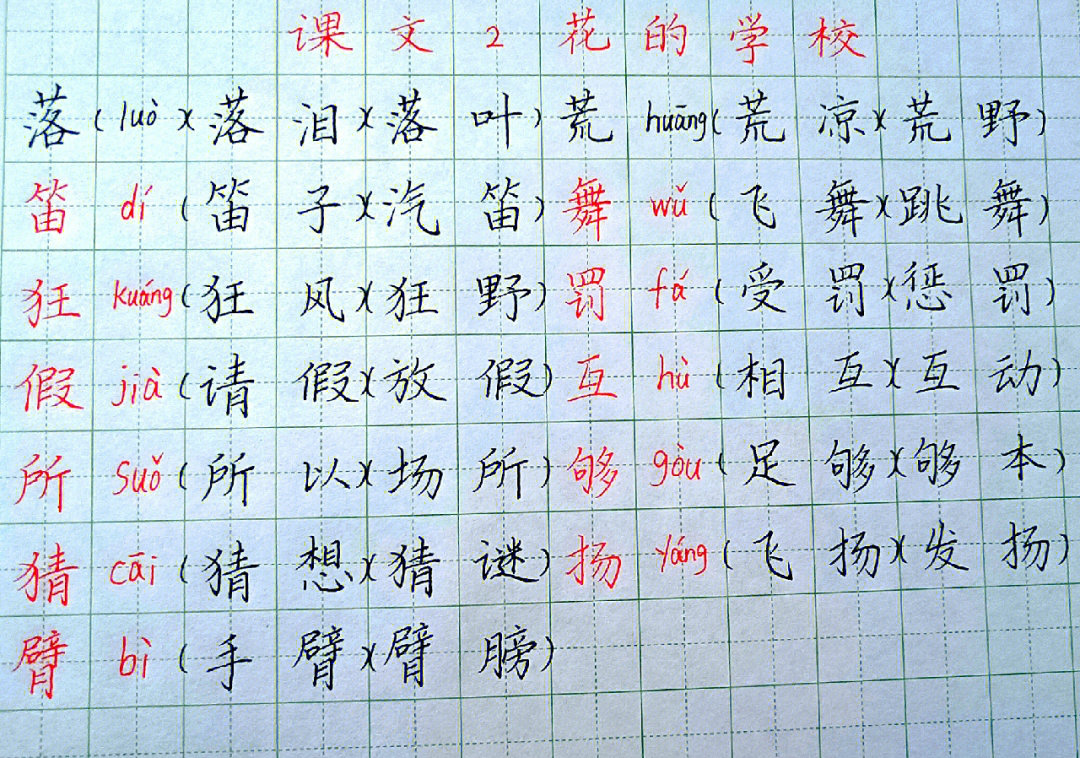 课文2花的学校
落(luò)(落泪)(落叶)荒huāng(荒凉)(荒野)
笛dí(笛子)(汽笛)舞wǔ(飞舞)(跳舞)
狂kuáng(狂风)(狂野)罚fá(受罚)(惩罚)
假jià(请假)(放假)互hù(相互)(互动)
所suǒ(所以)(场所)够gòu(足够)(够本)
猜cāi(猜想)(猜谜)扬yáng(飞扬)(发扬)
臂bì(手臂)(臂膀)